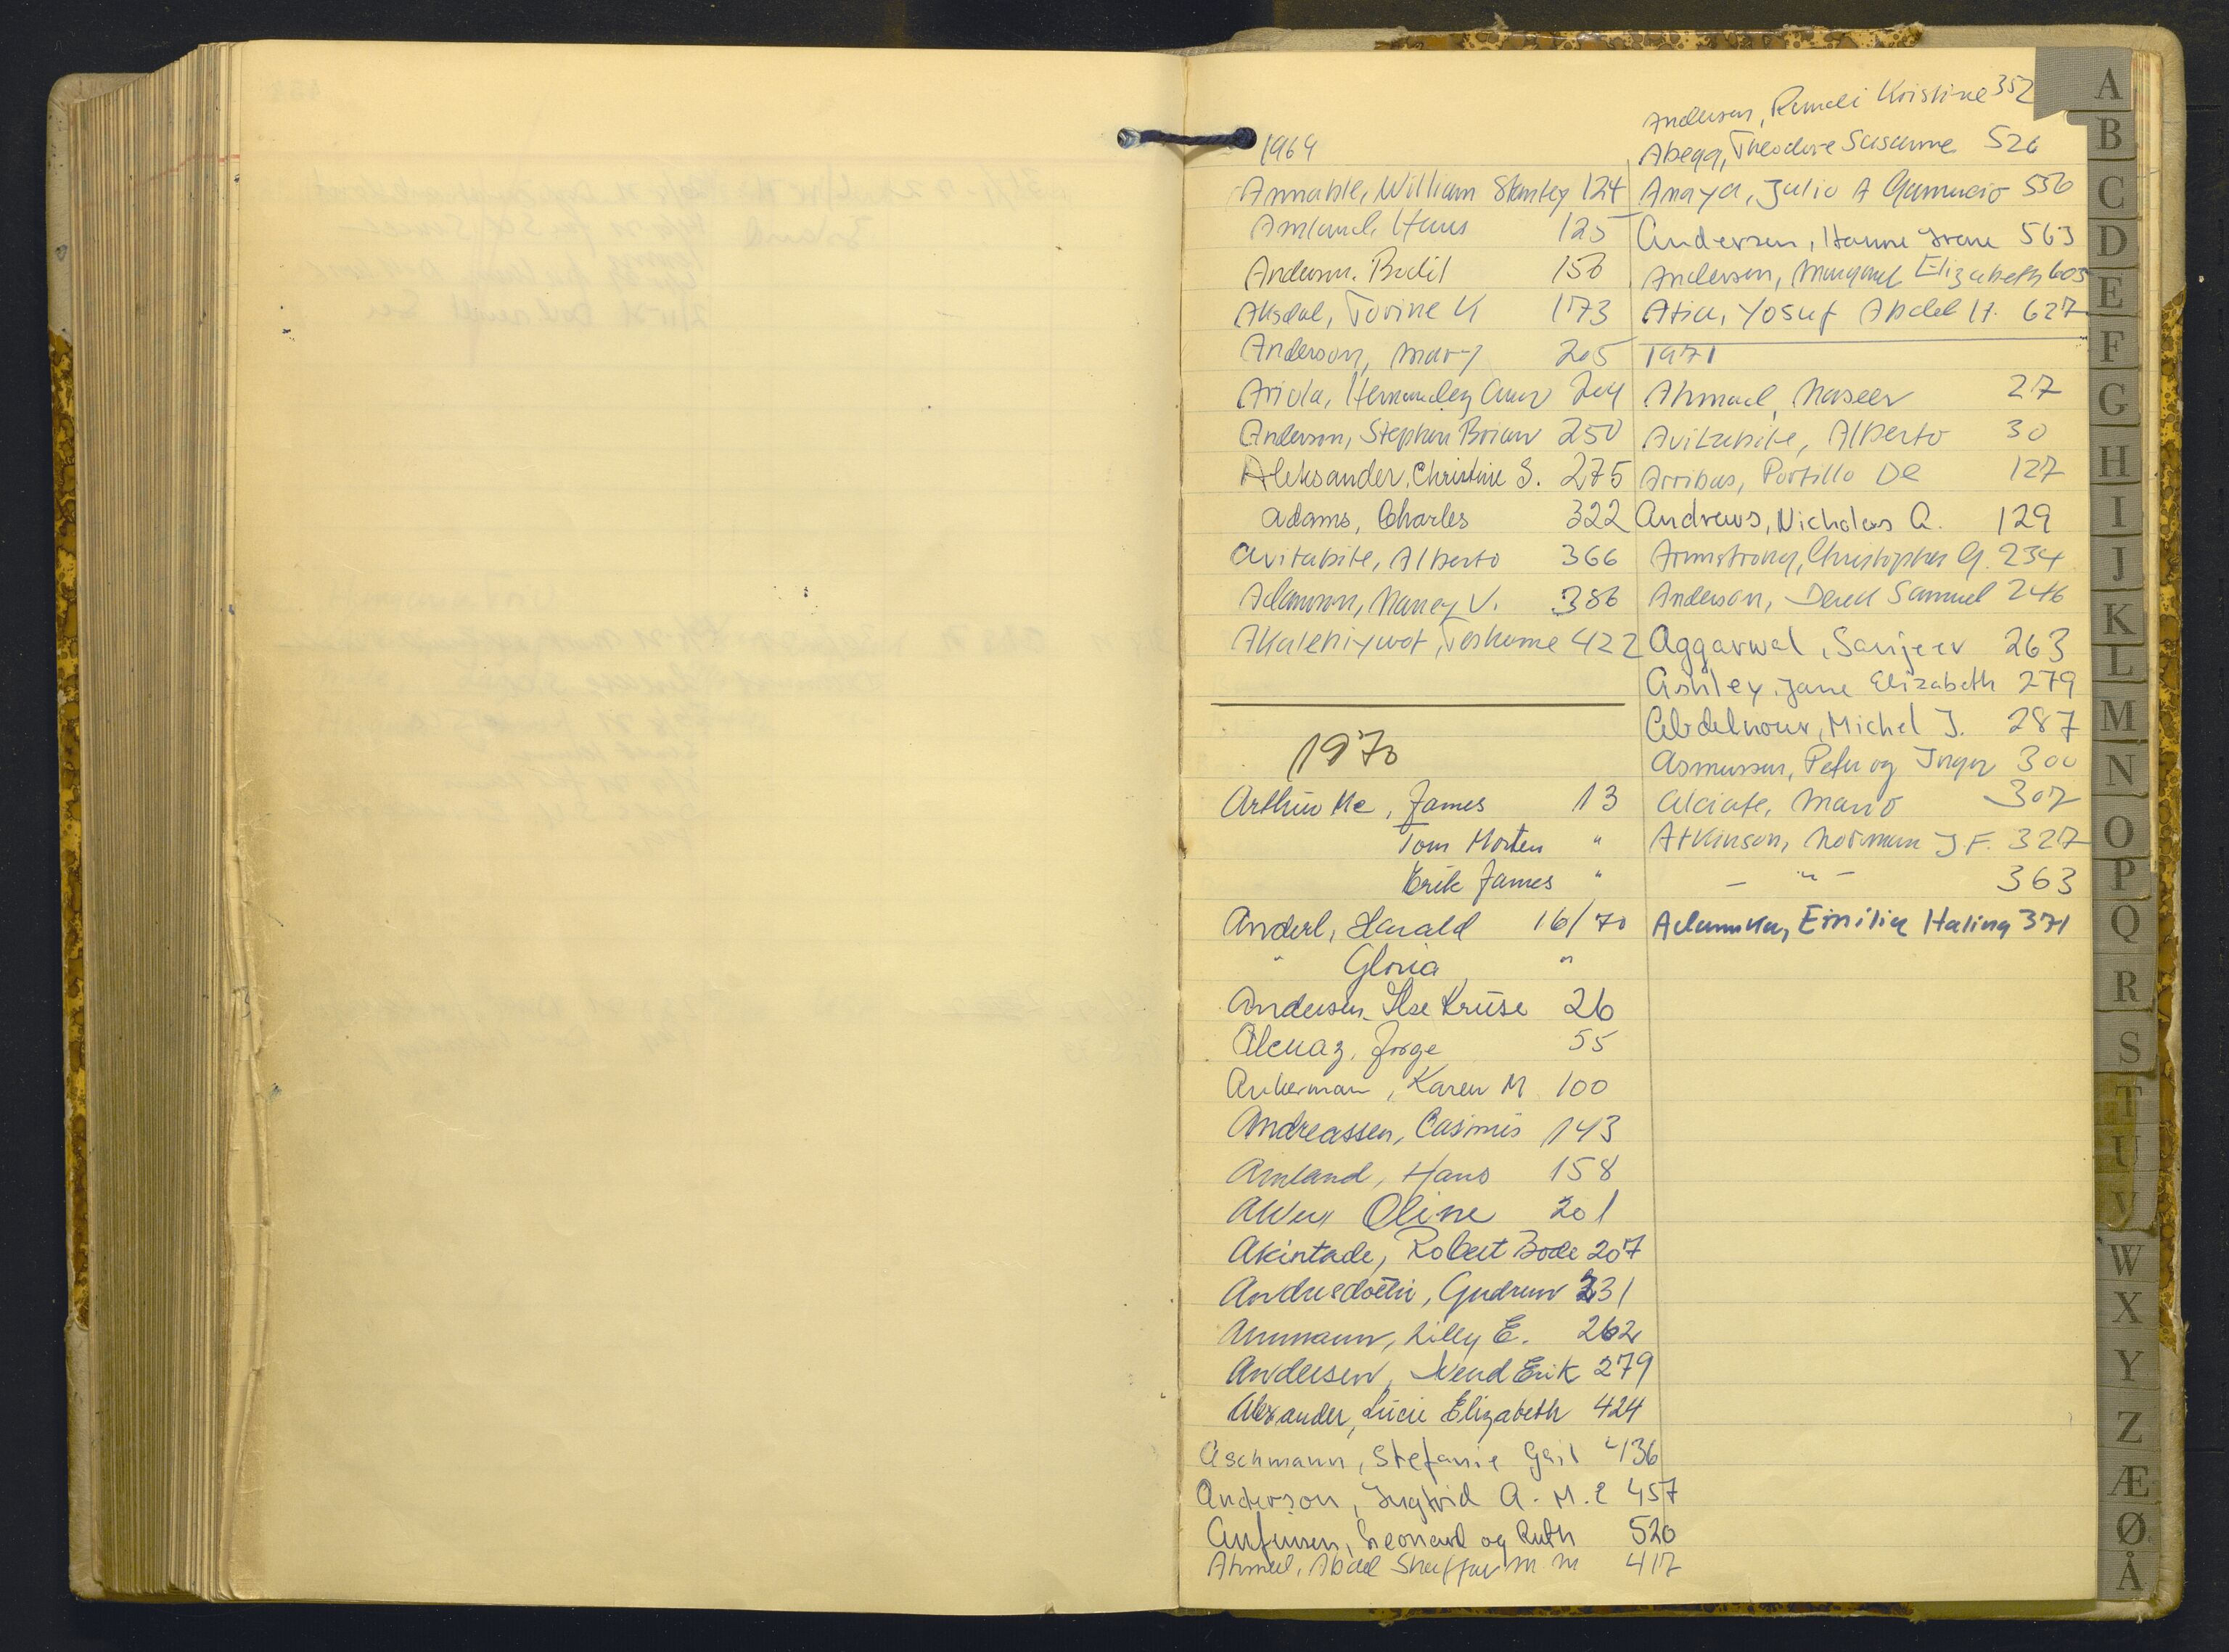 1969
Annable, William Stanley 124
Amland, Hans 125
Anderson, Bodil 156
Aksdal, Torine K 173
Anderson, Mary 205
Ariola, Hernandez 204
Anderson, Stephen Brian 250
Aleksander, Christine S. 275
Adams, Charles 322
Avitabile, Alberto 366
Adamson, Nancy V. 386
Teshome 422
1970
Arthur Mc, James 13
Tom Morten "
Erik James "
Anderl, Harald 16/70
" Gloria "
Andersen, Ilse Kruse 26
Jorge 55
Ankerman, Karen M 100
Andreassen, Casimir 143
Amland, Hans 158
Oline 201
Akintade, Robert Bode 207
Gudrun 231
Ammann, Lilly E. 262
Andersen, Svend Erik 279
Alexander, Lucie Elizabeth 424
Aschmann, Stefanie Gail 436
Anderson, Ingrid A. M. E 457
Leonard og Ruth 520
Ahmed, Abdel M. M 417
Andersen, Kristine 352
Abegg, Theodore Susanne 526
Anaya, Julio A 556
Andersen, Hanne Irene 563
Andersen, Margaret Elizabeth 605
Atia, Yosuf Abdel H. 627
1971
Ahmad, Naseer 27
Avitabile, Alberto 30
Arribas, Portillo De 127
Andrews, Nicholas A. 129
Armstrong, Christopher G. 234
Anderson, Derek Samuel 246
Aggarwal, Sanjeev 263
Ashley, Jane Elizabeth 279
Abdelnour, Michel J. 287
Asmussen, Peter og Inger 300
Alciate, Mario 307
Atkinson, Norman J. F. 327
- " - 363
Adamska, Emilia Halina 371
A
B
C
D
E
F
G
H
I
J
K
L
M
N
O
P
Q
R
S
T
U
V
W
X
Y
Z
Æ
Ø
Å